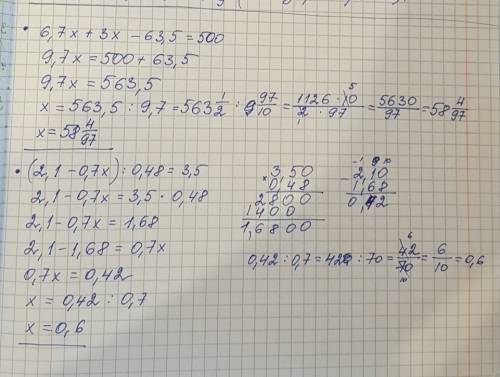 • 6,7x + 3x - 63,5 = 500
9,7x = 500 + 63,5
9,7x = 563,5
x = 563,5 : 9,7 = 563 1/2 : 9 97/10 = 1126 · 10 5/2 1 · 97 = 5630/97 = 58 4/97
x = 58 4/97
• (2,1 - 0,7x) : 0,48 = 3,5
2,1 - 0,7x = 3,5 · 0,48
2,1 - 0,7x = 1,68
2,1 - 1,68 = 0,7x
0,7x = 0,42
x = 0,42 : 0,7
x = 0,6
× 3,50
0,48
2800
1400
1,6800
- 2,10
1,68
0,42
0,42 : 0,7 = 42 : 70 = 42 6/70 10 = 6/10 = 0,6